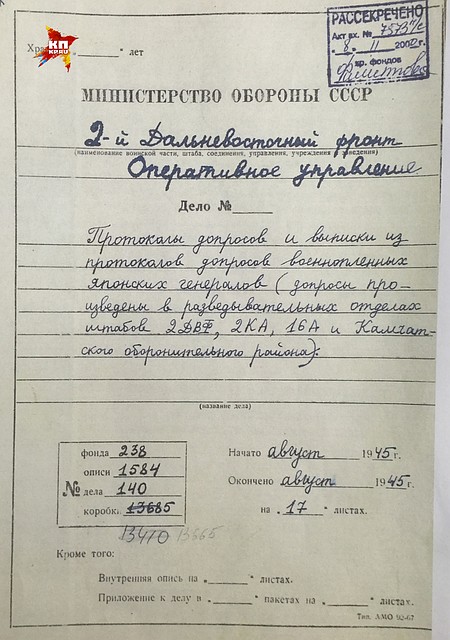 РАССЕКРЕЧЕНО
Акт вх. №
8. 11 2002 г.
хр. фондов
КП
KP.RU
Хра " " лет
МИНИСТЕРСТВО ОБОРОНЫ СССР
2-й Дальневосточный фронт
(наименование воинской части, штаба, соединения, управления, учреждения заведения)
Оперативное управление
Дело №
Протоколы допросов и выписки из
протоколов допросов военнопленных
японских генералов (допросы про-
изведены в разведывательных отделах
штабов 2ДВФ, 2КА, 16А и Камчат-
ского оборонительного района).
(название дела)
№
фонда 238
описи 1584
дела 140
коробки 13685
13470 13665
Начато август 1945 г.
Окончено август 1945 г.
на "17" листах.
Кроме того:
Внутренняя опись на " " листах.
Приложение к делу в " " пакетах на " " листах.
Тип. АМО 92-67